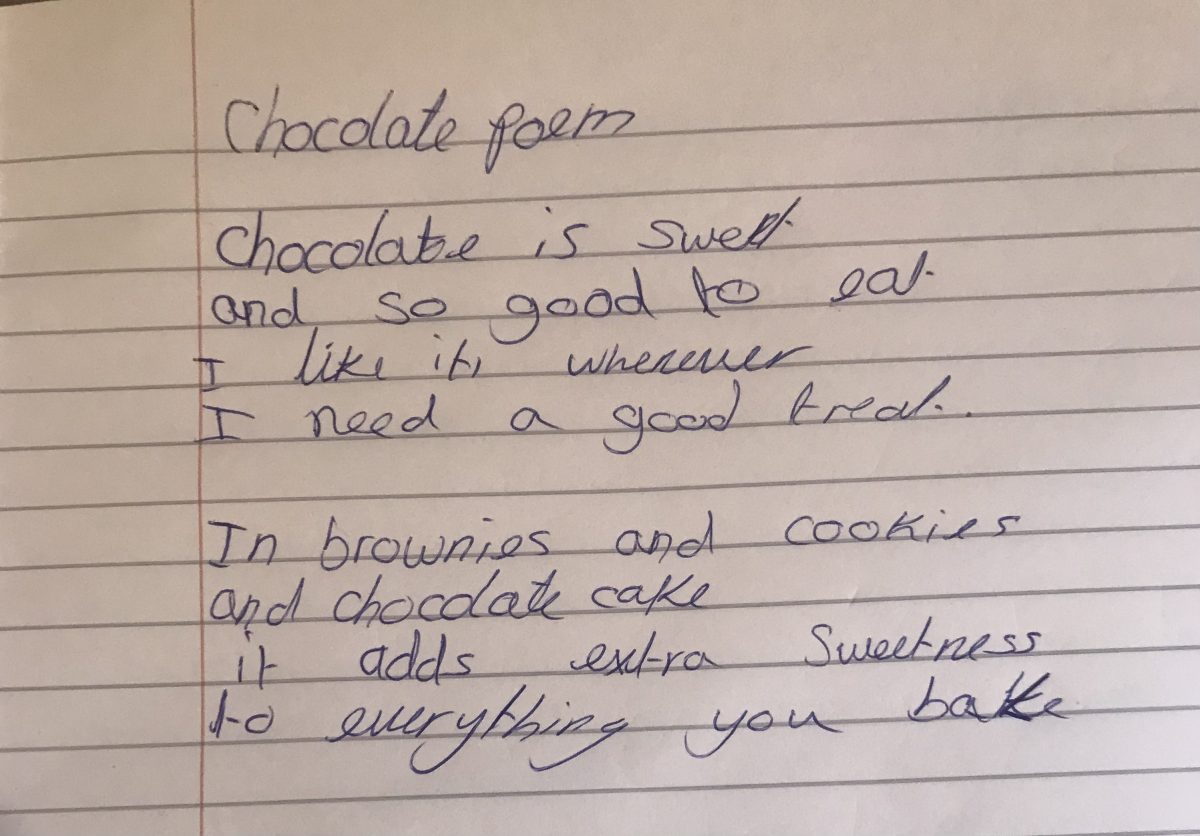 Chocolate poem
Chocolate is sweet
and so good to eat
I like it, whenever
I need a good treat.
In brownies and cookies
and chocolate cake
it adds extra Sweetness
to everything you bake